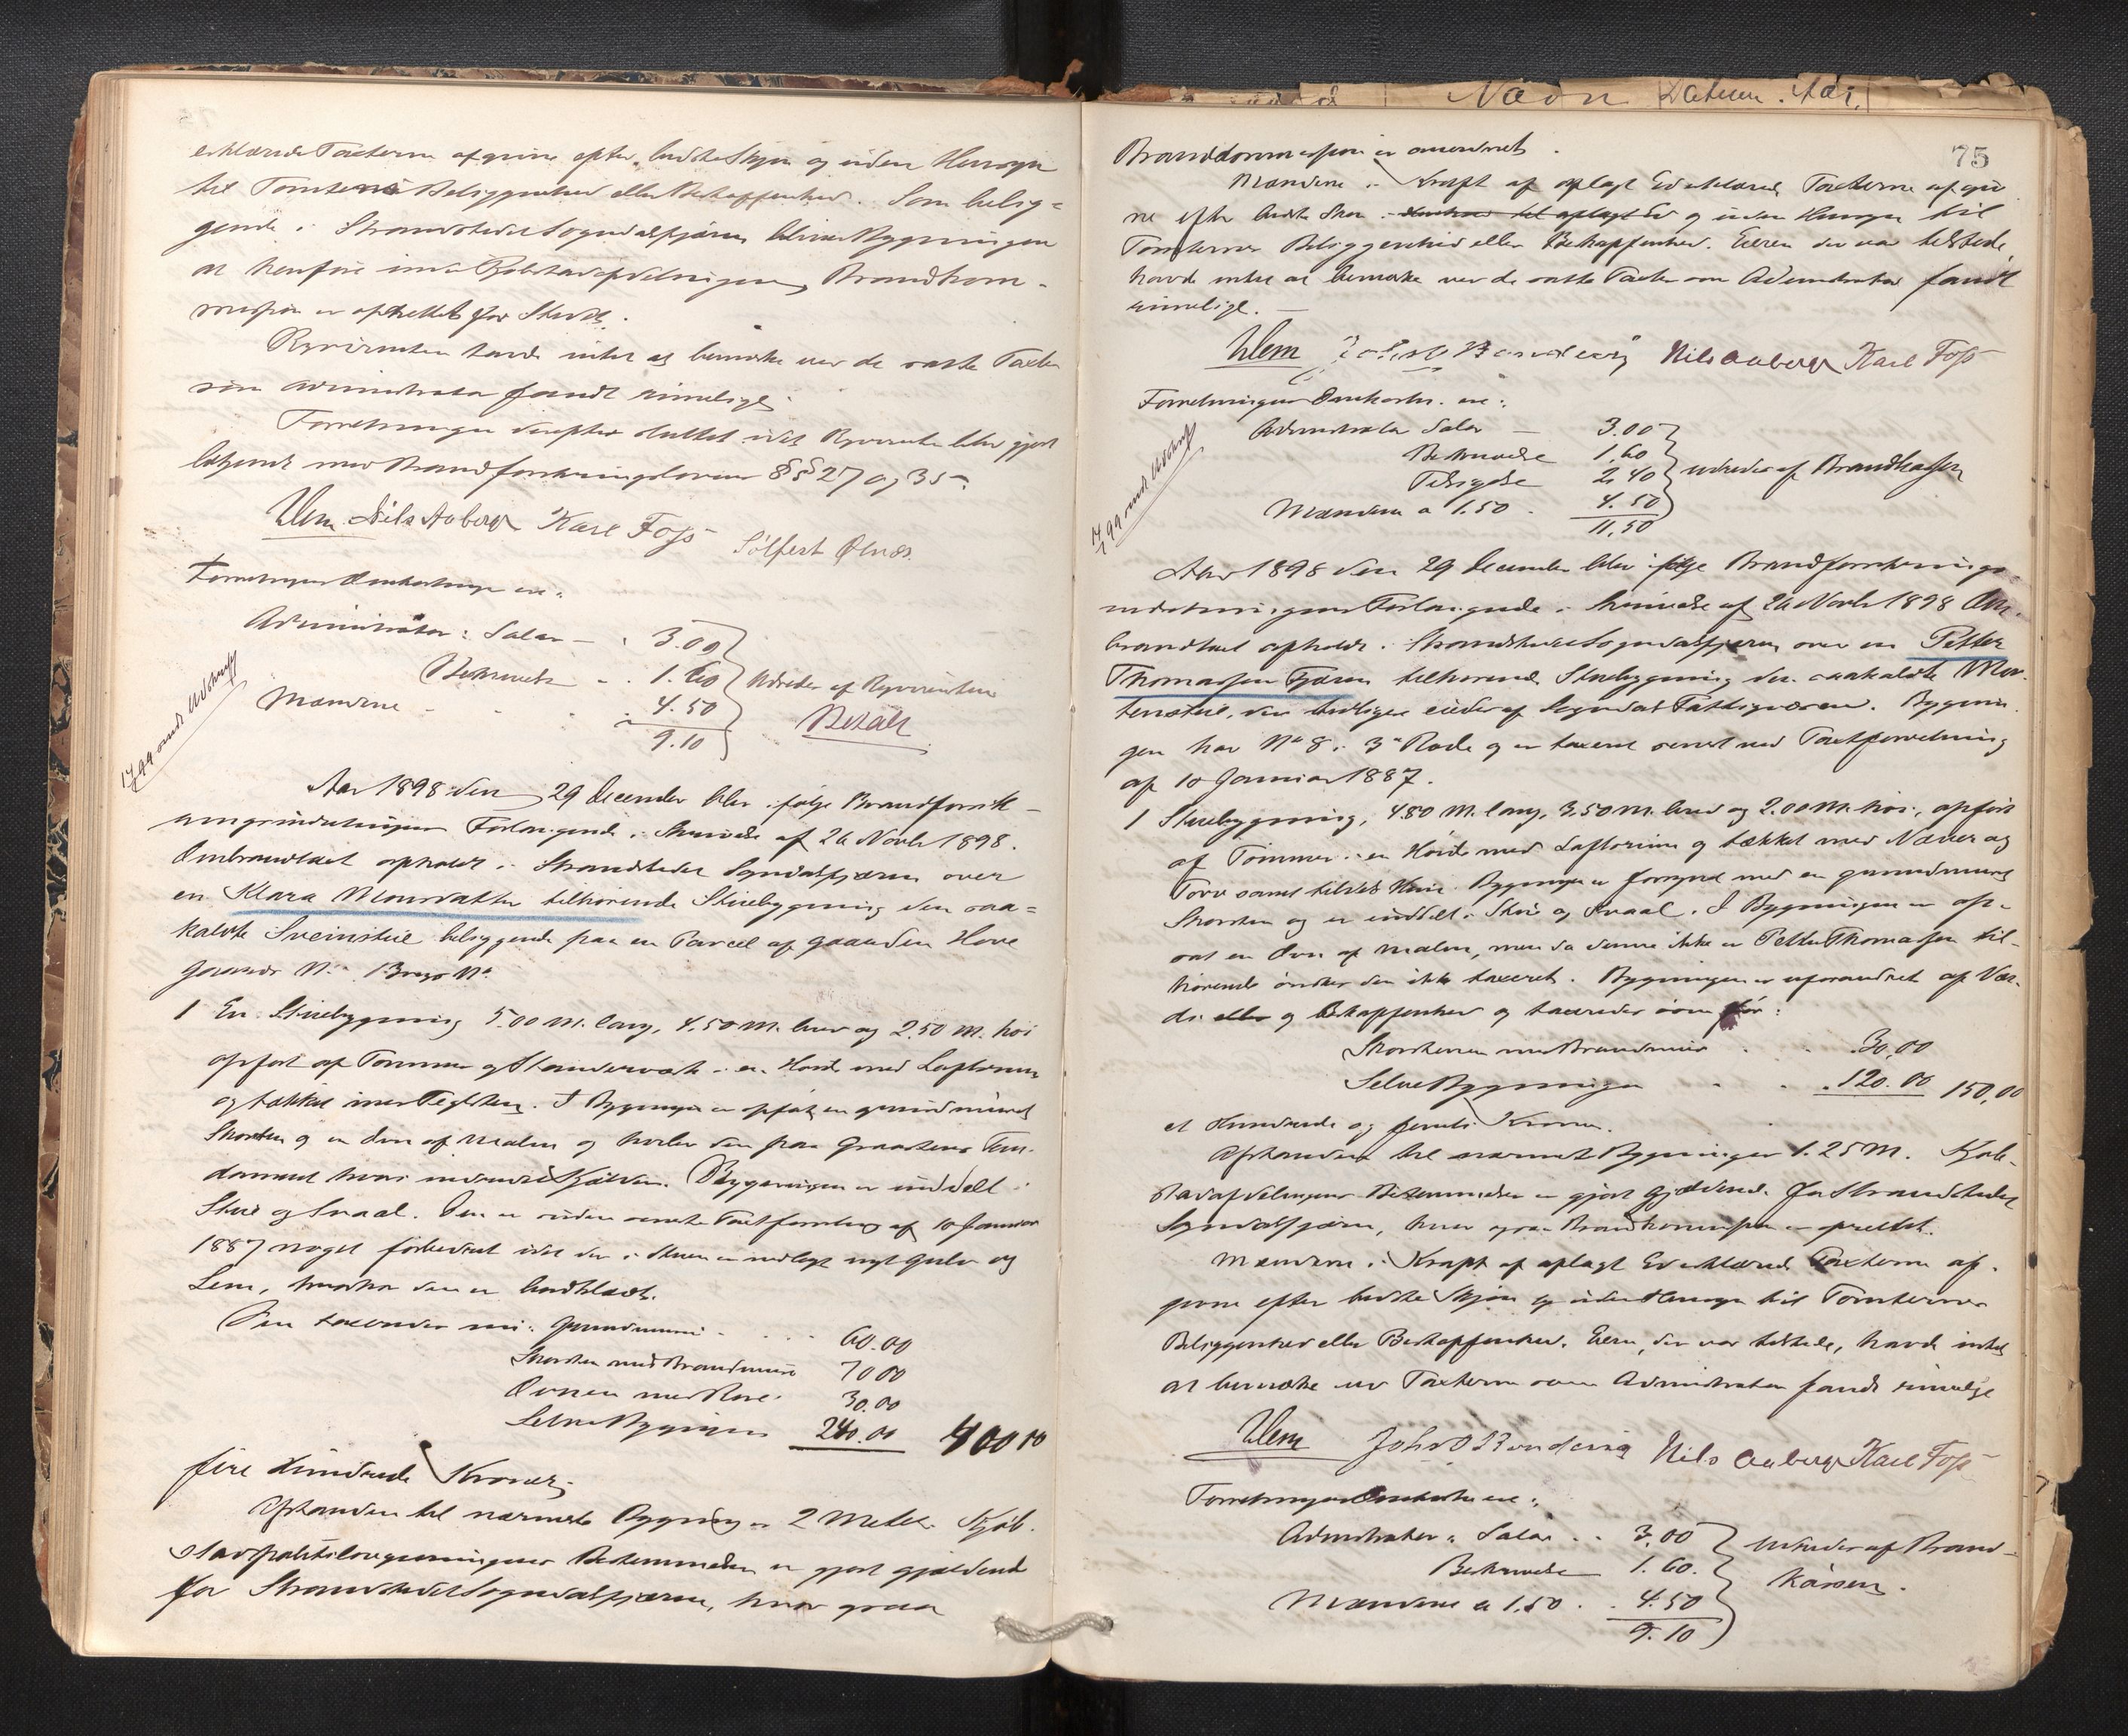 erklærede Taxterne afgivne efter bedste Skjøn og uden Hensyn
til Tomtens Beliggenhed eller Beskaffenhed. Som belig=
gende i Strandstedet Sogndalsfjæren bliver Bygningen
at henføre ind i Kjøbstadafdelingen, Brandkom-
mission er oprettet for Stedet.
Rekvirenten havde intet at bemærke ved de satte Taxter
som Administrator fandt rimelige.
Forretningen derefter sluttet idet Rekvirenten blev gjort
bekjendt med Brandforsikringslovens §§ 27 og 35.
Ulem Nils Aaberge Karl Foss Sølfest Ølnæs.
Forretningens Omkostninger ere:
Administrator: Salær - 3.00
Beskrivelse - 1.60 Udredes af Rekvirenten
Mændene 4.50 Betalt
9.10
Aar 1898 den 29 December blev ifølge Brandforsik-
ringsindretningens Forlangende i Skrivelse af 26 Novbr 1898.
Ombrandtaxt afholdt i Strandstedet Sogndalsfjæren over
en Klara Monsdatter tilhørende Stuebygning den saa=
kaldte Sveinstue beliggende paa en Parcel af Gaarden Hove
Gaards No Brugs No
1 En Stuebygning 5.00 M. lang, 4.50 M. bred og 2.50 M. høi
opført af Tømmer og Standerværk i en Høide med Loftsrum
og tækket med Teglsten. I Bygningen er opført en grundmuret
Skorsten og en Ovn af Malm og hviler den paa Graastens Fun-
dament hvori indredet Kjælder. Bygningen er inddelt i
Stue og Sval. Den er siden seneste Taxtforretning af 10 Januar
1887 noget forbedret idet der i Stuen er nedlagt nyt Gulv og
Lem, hvorhos den er bordklædt.
Den taxeredes saa: Grundmuren 60.00
Skorsten med Brandmure 70 00
Ovnen med Rør 30.00
Selve Bygningen 240.00 400 00
fire Hundrede Kroner.
Afstanden til nærmeste Bygning er 2 Meter. Kjøb-
stadafdelingens Bestemmelser er gjort gjældende
for Strandstedet Sogndalsfjæren, hvor ogsaa
1/99 sendt Udskrift
Navn Datum. Aar.
75
Brandkommission er anordnet.
Mændene i Kraft af aflagt Ed erklærede Taxterne afgiv
ne efter bedste Skjøn og uden Hensyn til
Tomternes Beliggenhed eller Beskaffenhed. Eieren der var tilstede
havde intet at bemærke ved de satte Taxter som Administrator fandt
rimelige.
Ulem Nils Aaberge Karl Foss
Forretningens Omkostn. ere:
Administrator Salær - 3.00
Beskrivelse 1.60
2.40 udredes af Brandkassen
Mændene a 1.50 . 4.50
11.50
1/99 sendt Udskrift
Aar 1898 den 29 December blev ifølge Brandforsikrings
indretningens Forlangende i Skrivelse af 26 Novbr 1898 Om-
brandtaxt afholdt i Strandstedet Sogndalsfjæren over en Petter
Thomassen Fjæren tilhørende Stuebygning den saakaldte Mor-
tenstue, der tidligere eiedes af Sogndals Fattigvæsen. Bygnin-
gen har No 8 i 3de Rode og er taxeret senest ved Taxtforretning
af 10 Januar 1887.
1 Stuebygning, 4.80 M. lang, 3.50 M. bred og 2.00 M. høi, opført
af Tømmer i en Høide med Loftsrum og tækket med Næver og
Torv samt tildels Heller. Bygningen er forsynet med en grundmuret
Skorsten og er inddelt i Stue og Sval. I Bygningen er op-
sat en Ovn af Malm, men da denne ikke er Petter Thomassen til-
hørende ønskes den ikke taxeret. Bygningen er uforandret af Vær-
di eller og Beskaffenhed og taxeredes som før:
Skorstenen med Brandmure 30.00
Selve Bygningen 120.00 150,00
et Hundrede og femti Kroner.
Afstanden til nærmeste Bygninger 1.25 M. Kjøb-
stadafdelingens Bestemmelser er gjort gjældende for Strandstedet
Sogndalsfjæren, hvor ogsaa Brandkommission er oprettet.
Mændene i Kraft af aflagt Ed erklærede Taxterne af-
givne efter bedste Skjøn og uden Hensyn til Tomternes
Beliggenhed eller Beskaffenhed. Eieren, der var tilstede, havde intet
at bemærke ved Taxterne som Administrator fandt rimelige
Ulem Nils Aaberge Karl Foss
Forretningens Omkostn. ere:
Administrator: Salær 3.00 Udredes af Brand-
Beskrivelse 1.60. kassen.
Mændene a 1.50 4.50
9.10